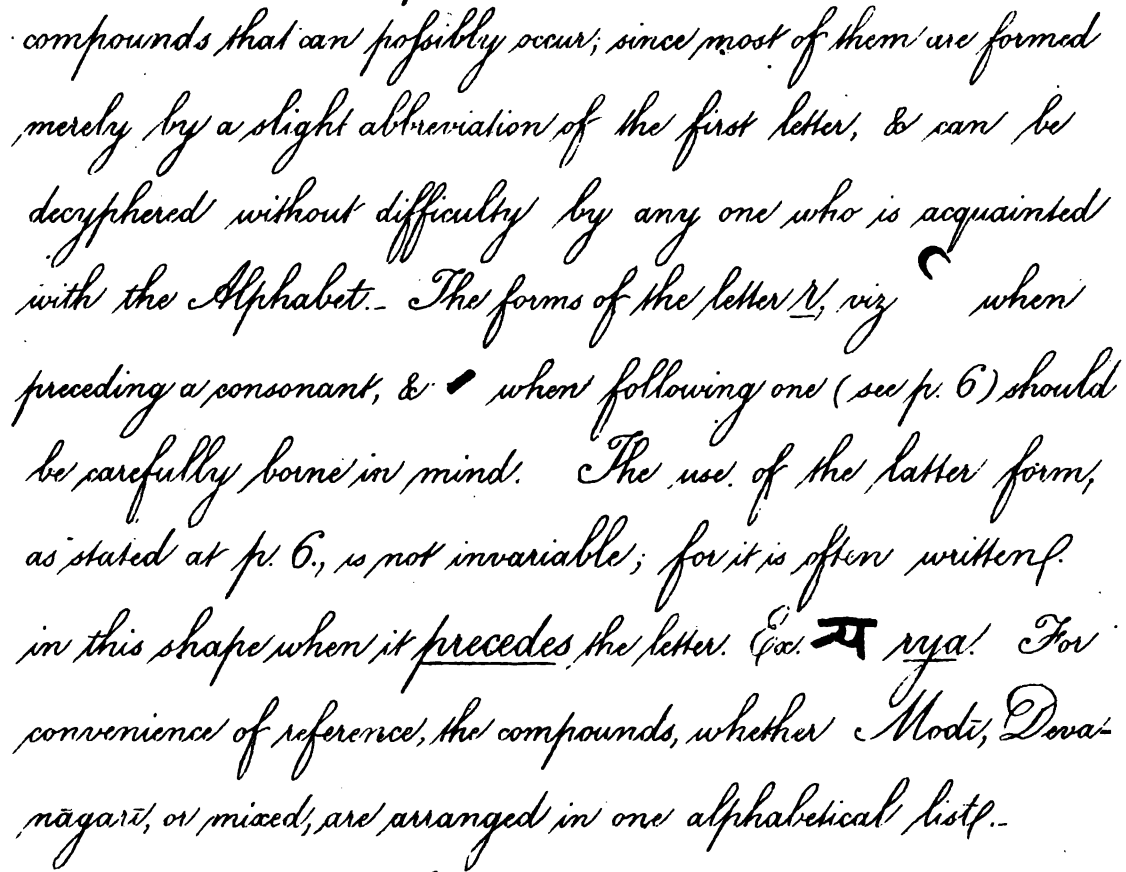 compounds that can poſsibly occur; since most of them are formed
merely by a slight abbreviation of the first letter, & can be
decyphered without difficulty by any one who is acquainted
with the Alphabet._ The forms of the letter r, viz when
preceding a consonant, & when following one (see p. 6) should
be carefully borne in mind. The use of the latter form,
as stated at p. 6., is not invariable; for it is often written
in this shape when it precedes the letter. Ex. ऱ्य rya. For
convenience of reference, the compounds, whether Modī, Deva-
nāgarī, or mixed, are arranged in one alphabetical list._